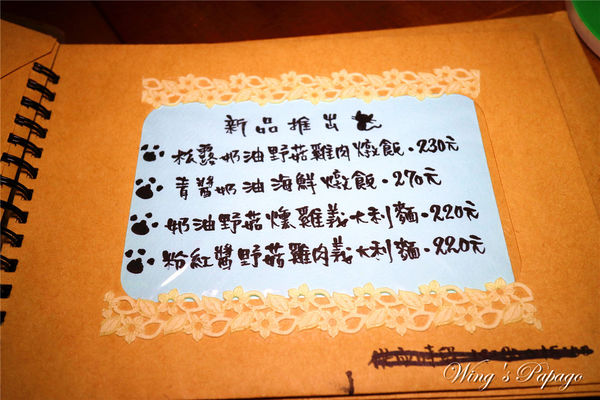 新品推出
松露奶油野菇雞肉燉飯・230元
青醬奶油海鮮燉飯・270元
奶油野菇燻雞義大利麵・220元
粉紅醬野菇雞肉義大利麵・220元
Wing's Papago